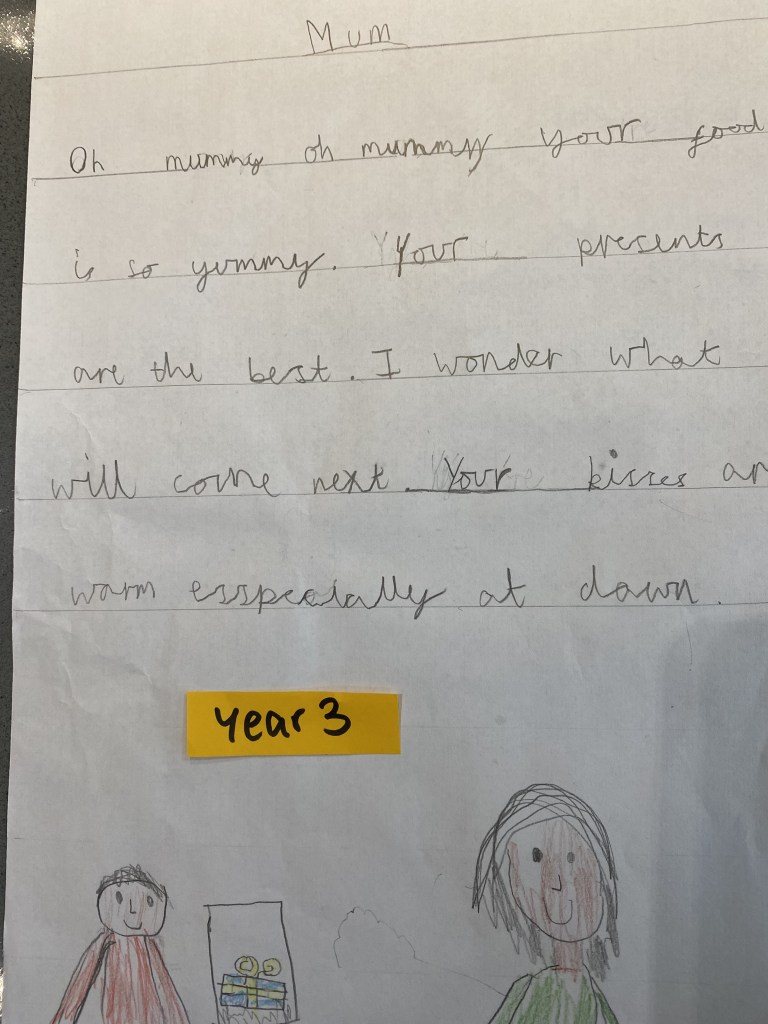 Mum
Oh mummy oh mummy your food
is so yummy. Your presents
are the best. I wonder what
will come next. Your kisses ar
warm esspecialally at dawn.
year 3